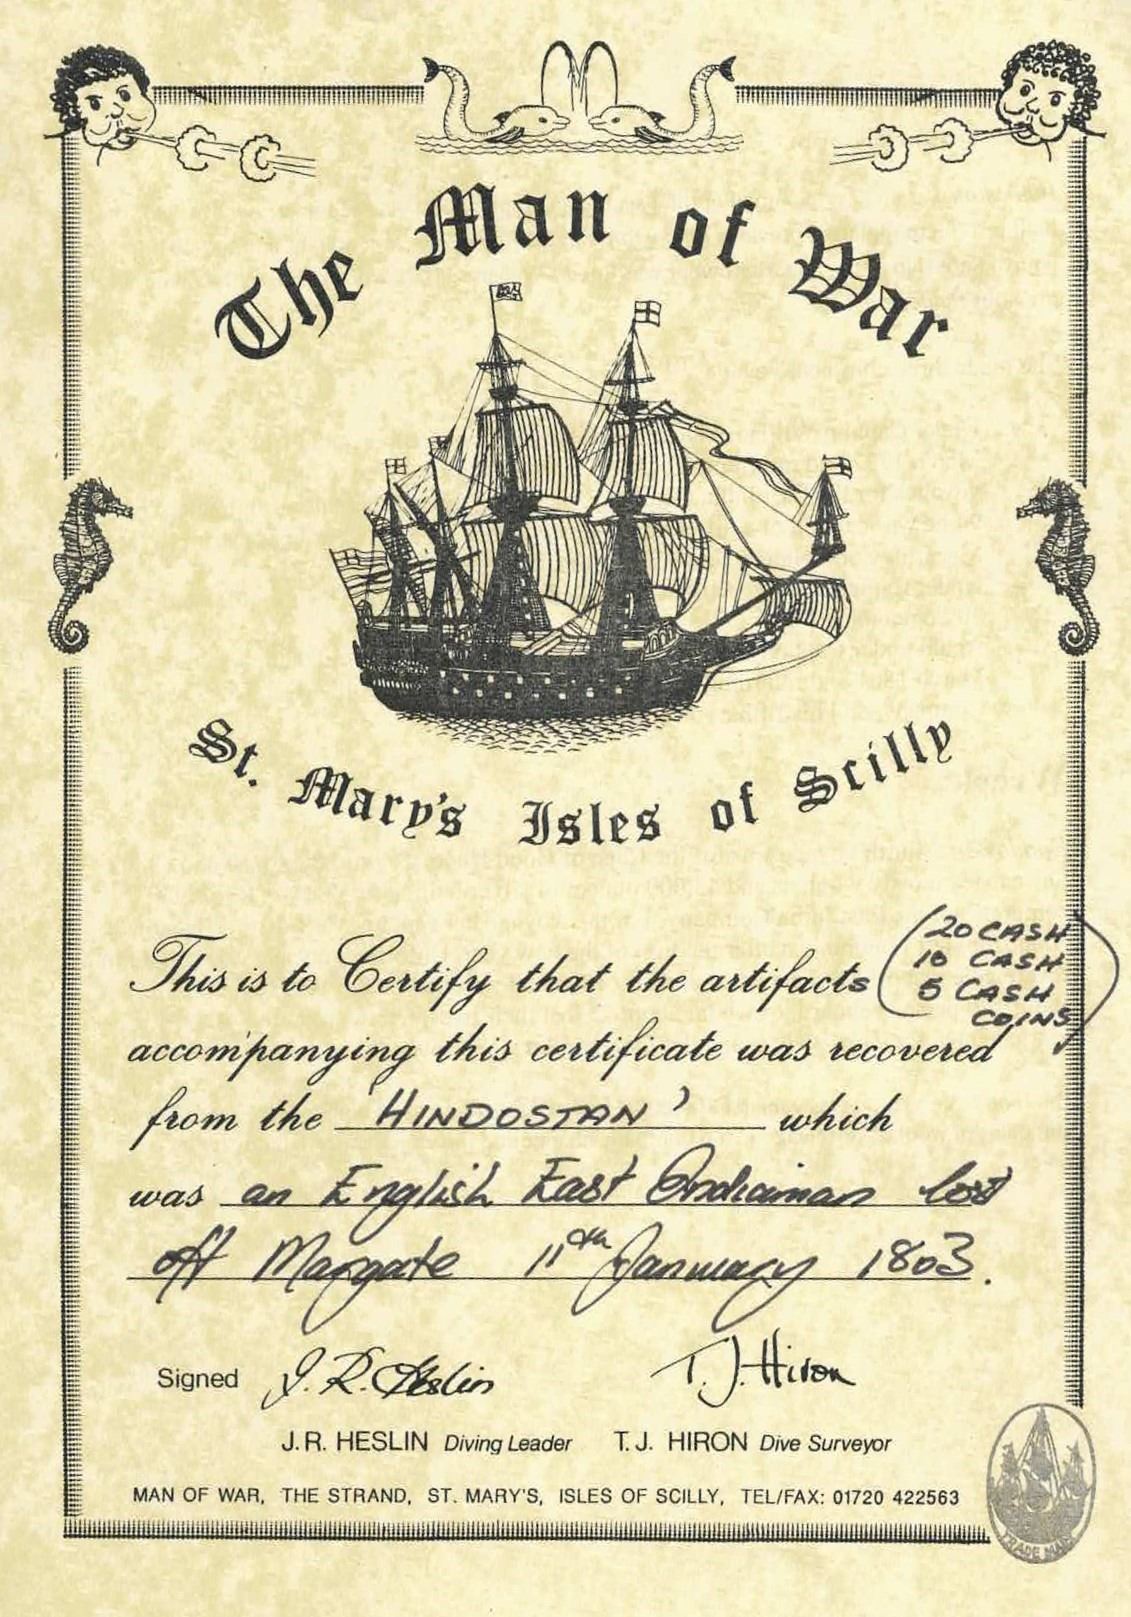 The Man of War
St. Mary's Isles of Scilly
(20 CASH
10 CASH
5 CASH
COINS)
This is to Certify that the artifacts
accompanying this certificate was recovered
from the 'HINDOSTAN' which
was an English East Indiaman lost
off Margate 11th January 1803.
Signed J.R. Heslin T.J. Hiron
J.R. HESLIN Diving Leader T.J. HIRON Dive Surveyor
MAN OF WAR, THE STRAND, ST. MARY'S, ISLES OF SCILLY, TEL/FAX: 01720 422563
TRADE MARK